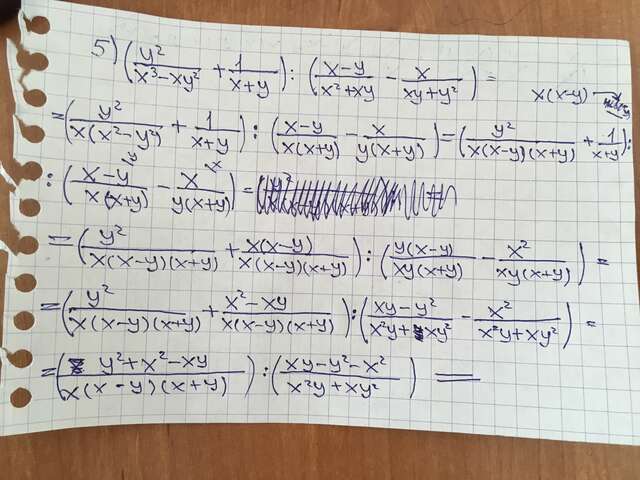 5) (y²/(x³-xy²) + 1/(x+y)) : ((x-y)/(x²+xy) - x/(xy+y²)) =
= (y²/(x(x²-y²)) + 1/(x+y)) : ((x-y)/(x(x+y)) - x/(y(x+y))) = (y²/(x(x-y)(x+y)) + 1/(x+y)) :
: ((x-y)/(x(x+y)) - x/(y(x+y))) =
= (y²/(x(x-y)(x+y)) + x(x-y)/(x(x-y)(x+y))) : (y(x-y)/(xy(x+y)) - x²/(xy(x+y))) =
= (y²/(x(x-y)(x+y)) + (x²-xy)/(x(x-y)(x+y))) : ((xy-y²)/(x²y+xy²) - x²/(x²y+xy²)) =
= ((y²+x²-xy)/(x(x-y)(x+y))) : ((xy-y²-x²)/(x²y+xy²)) =
x(x-y)